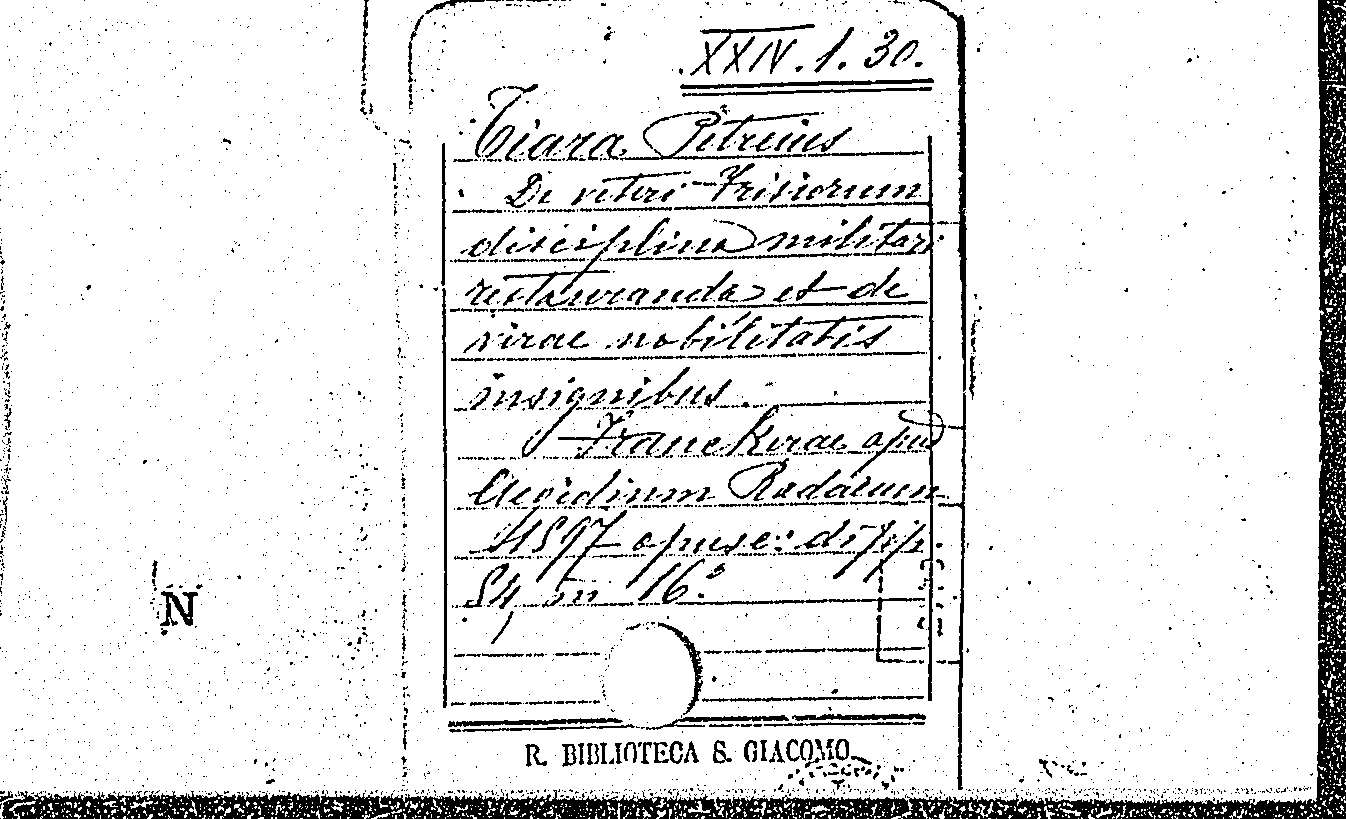 XXIV. 1. 30.
Tiara Petreius
De veteri Frisiorum
disciplina militari
restauranda et de
virae nobilitatis
insignibus.
Franekerae apud
Aegidium Radaeum
1597 opusc: di pp.
54, in 16.º
N
R. BIBLIOTECA S. GIACOMO